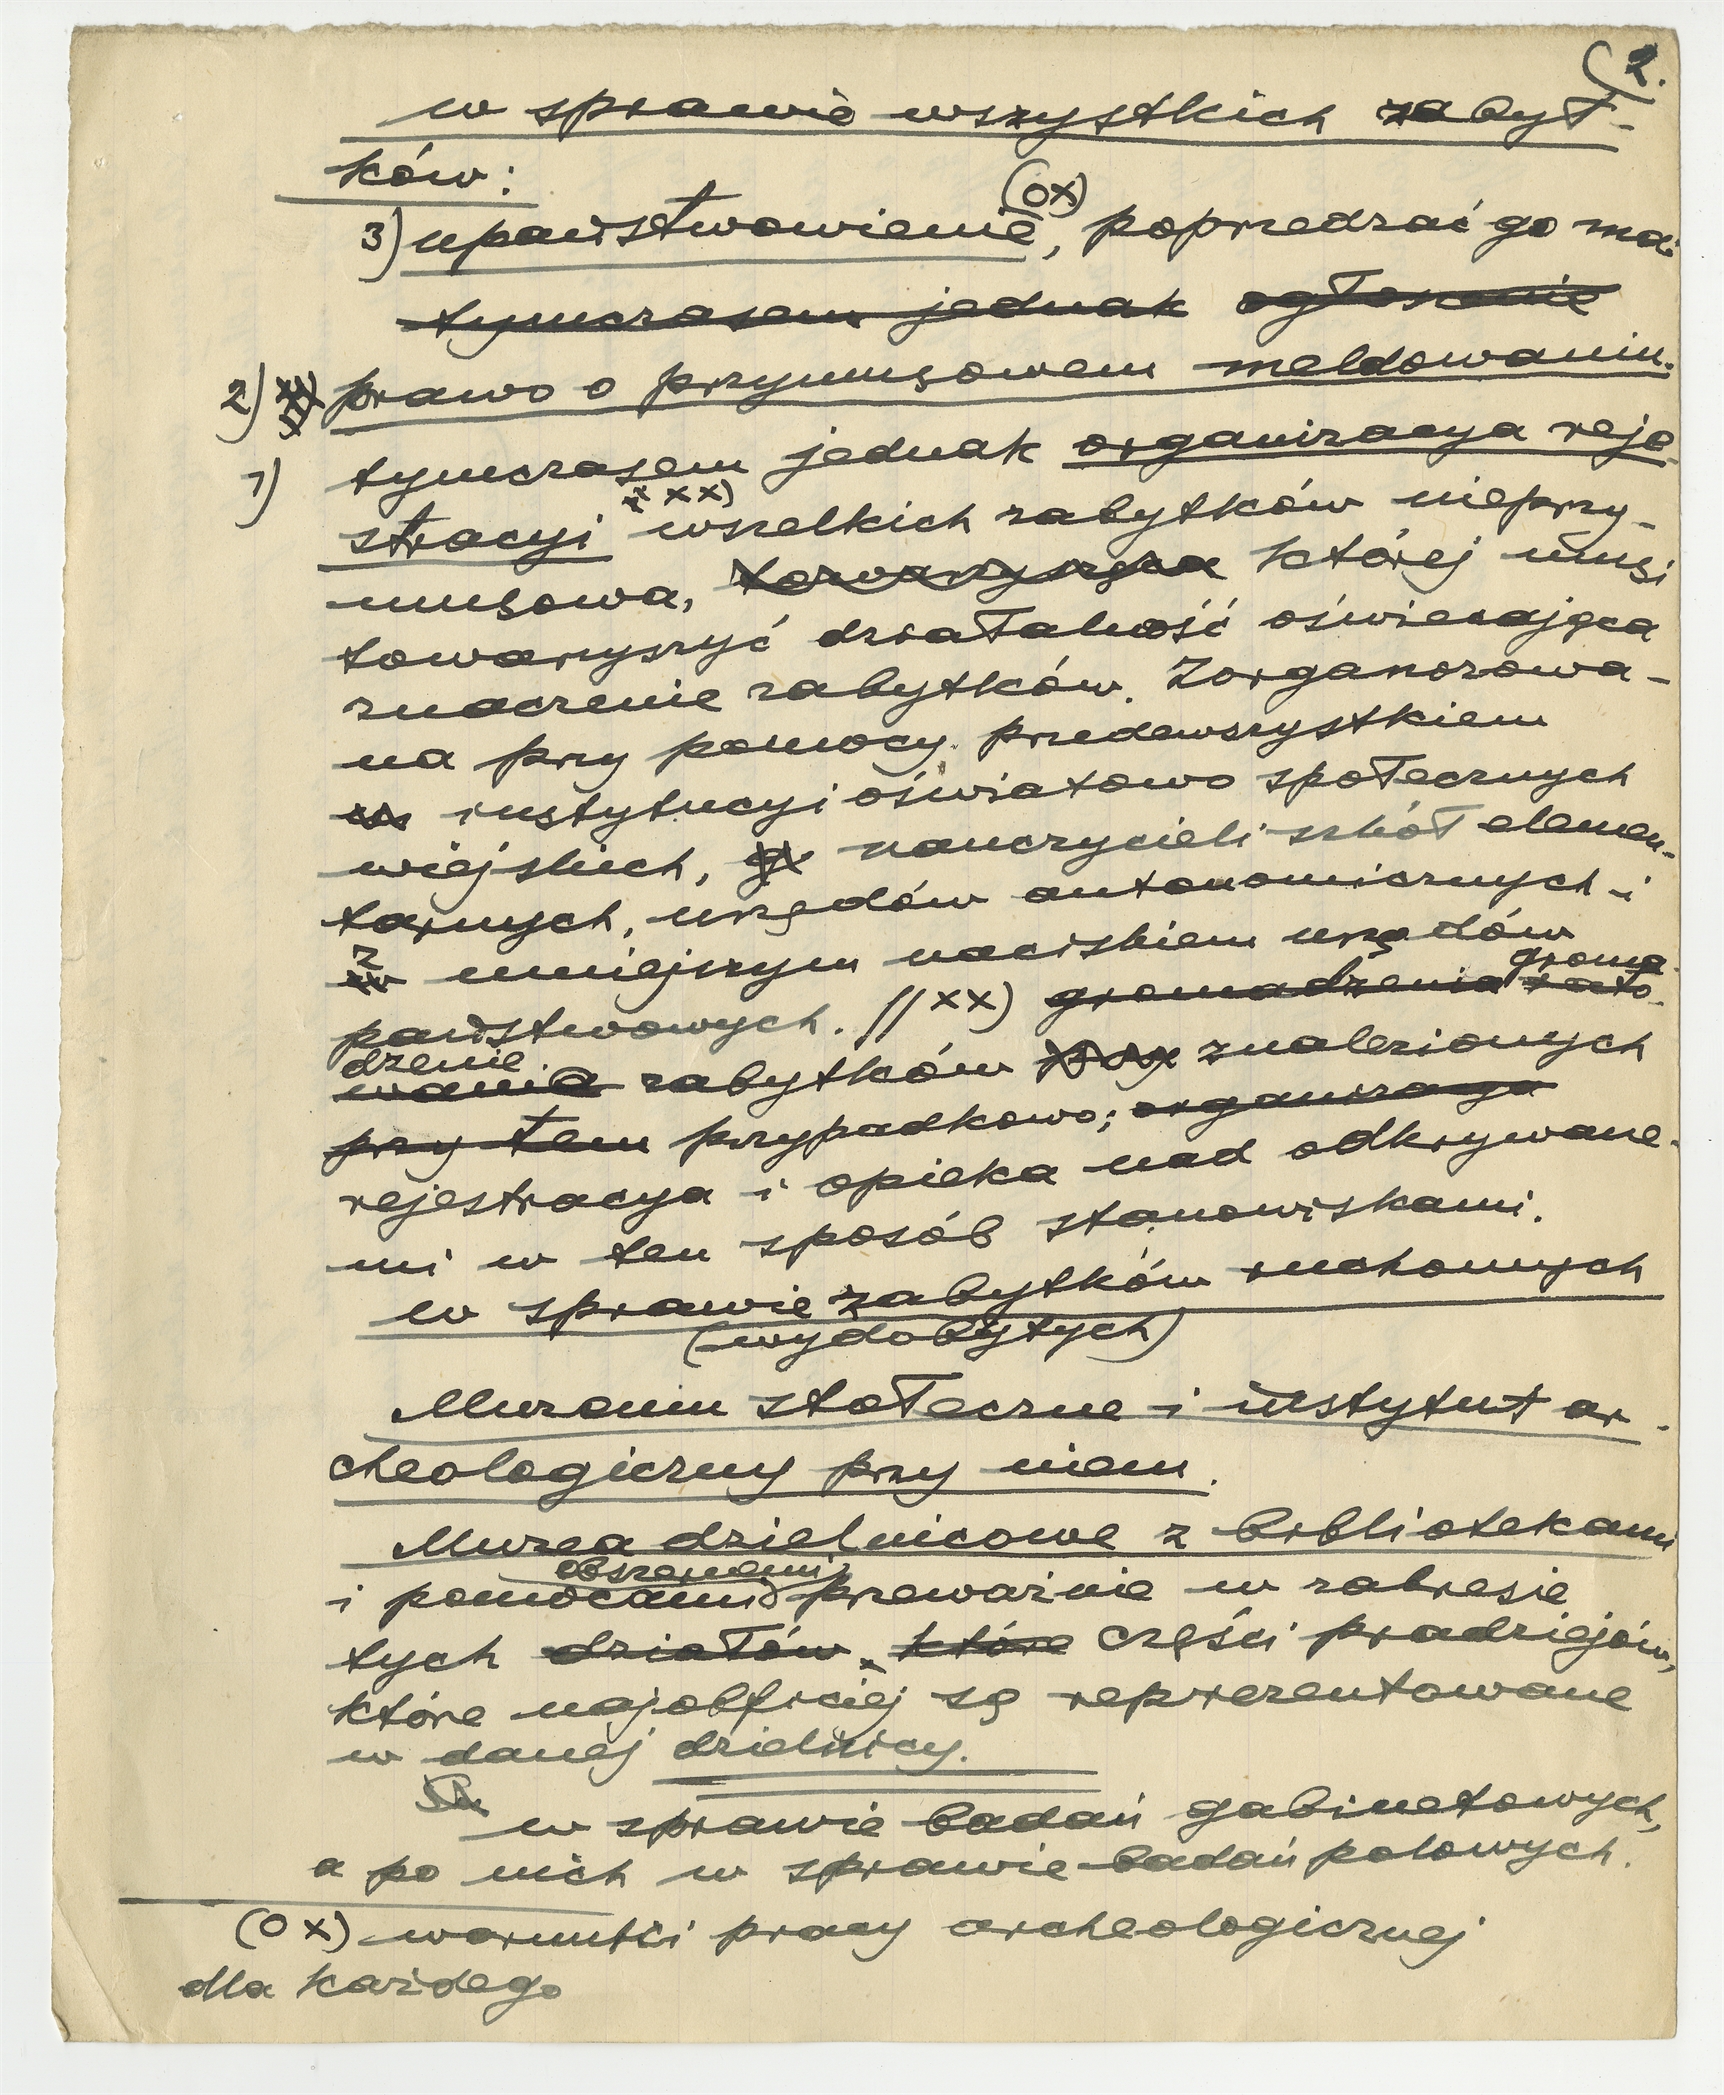 2.
w sprawie wszystkich zabyt-
ków:
(OX)
3) upaństwowienie, poprzedzać go ma:
tymczasem jednak ogłoszenie
2) prawo o przymusowem meldowaniu.
1) tymczasem jednak organizacya reje-
stracyi xx) wszelkich zabytków nieprzy-
musowa, towarzysząca której musi
towarzyszyć działalność oświecająca
znaczenie zabytków. Zorganizowa-
na przy pomocy przedewszystkiem
instytucyi oświatowo społecznych
wiejskich, nauczycieli szkół elemen-
tarnych, urzędów autonomicznych i
z mniejszym naciskiem urzędów
groma-
państwowych. // xx) gromadzenia rato-
dzenie
wania zabytków przy znalezionych
przy tem przypadkowo; organizacya
rejestracya i opieka nad odkrywane-
mi w ten sposób stanowiskami.
w sprawie zabytków ruchomych
(wydobytych)
Muzeum stołeczne i instytut ar-
cheologiczny przy niem.
Muzea dzielnicowe z bibliotekami
obszernemi
i pomocami przeważnie w zakresie
tych działów, które części pradziejów,
które najobficiej są reprezentowane
w danej dzielnicy.
w sprawie badań gabinetowych,
a po nich w sprawie badań polowych.
(OX) warunki pracy archeologicznej
dla każdego